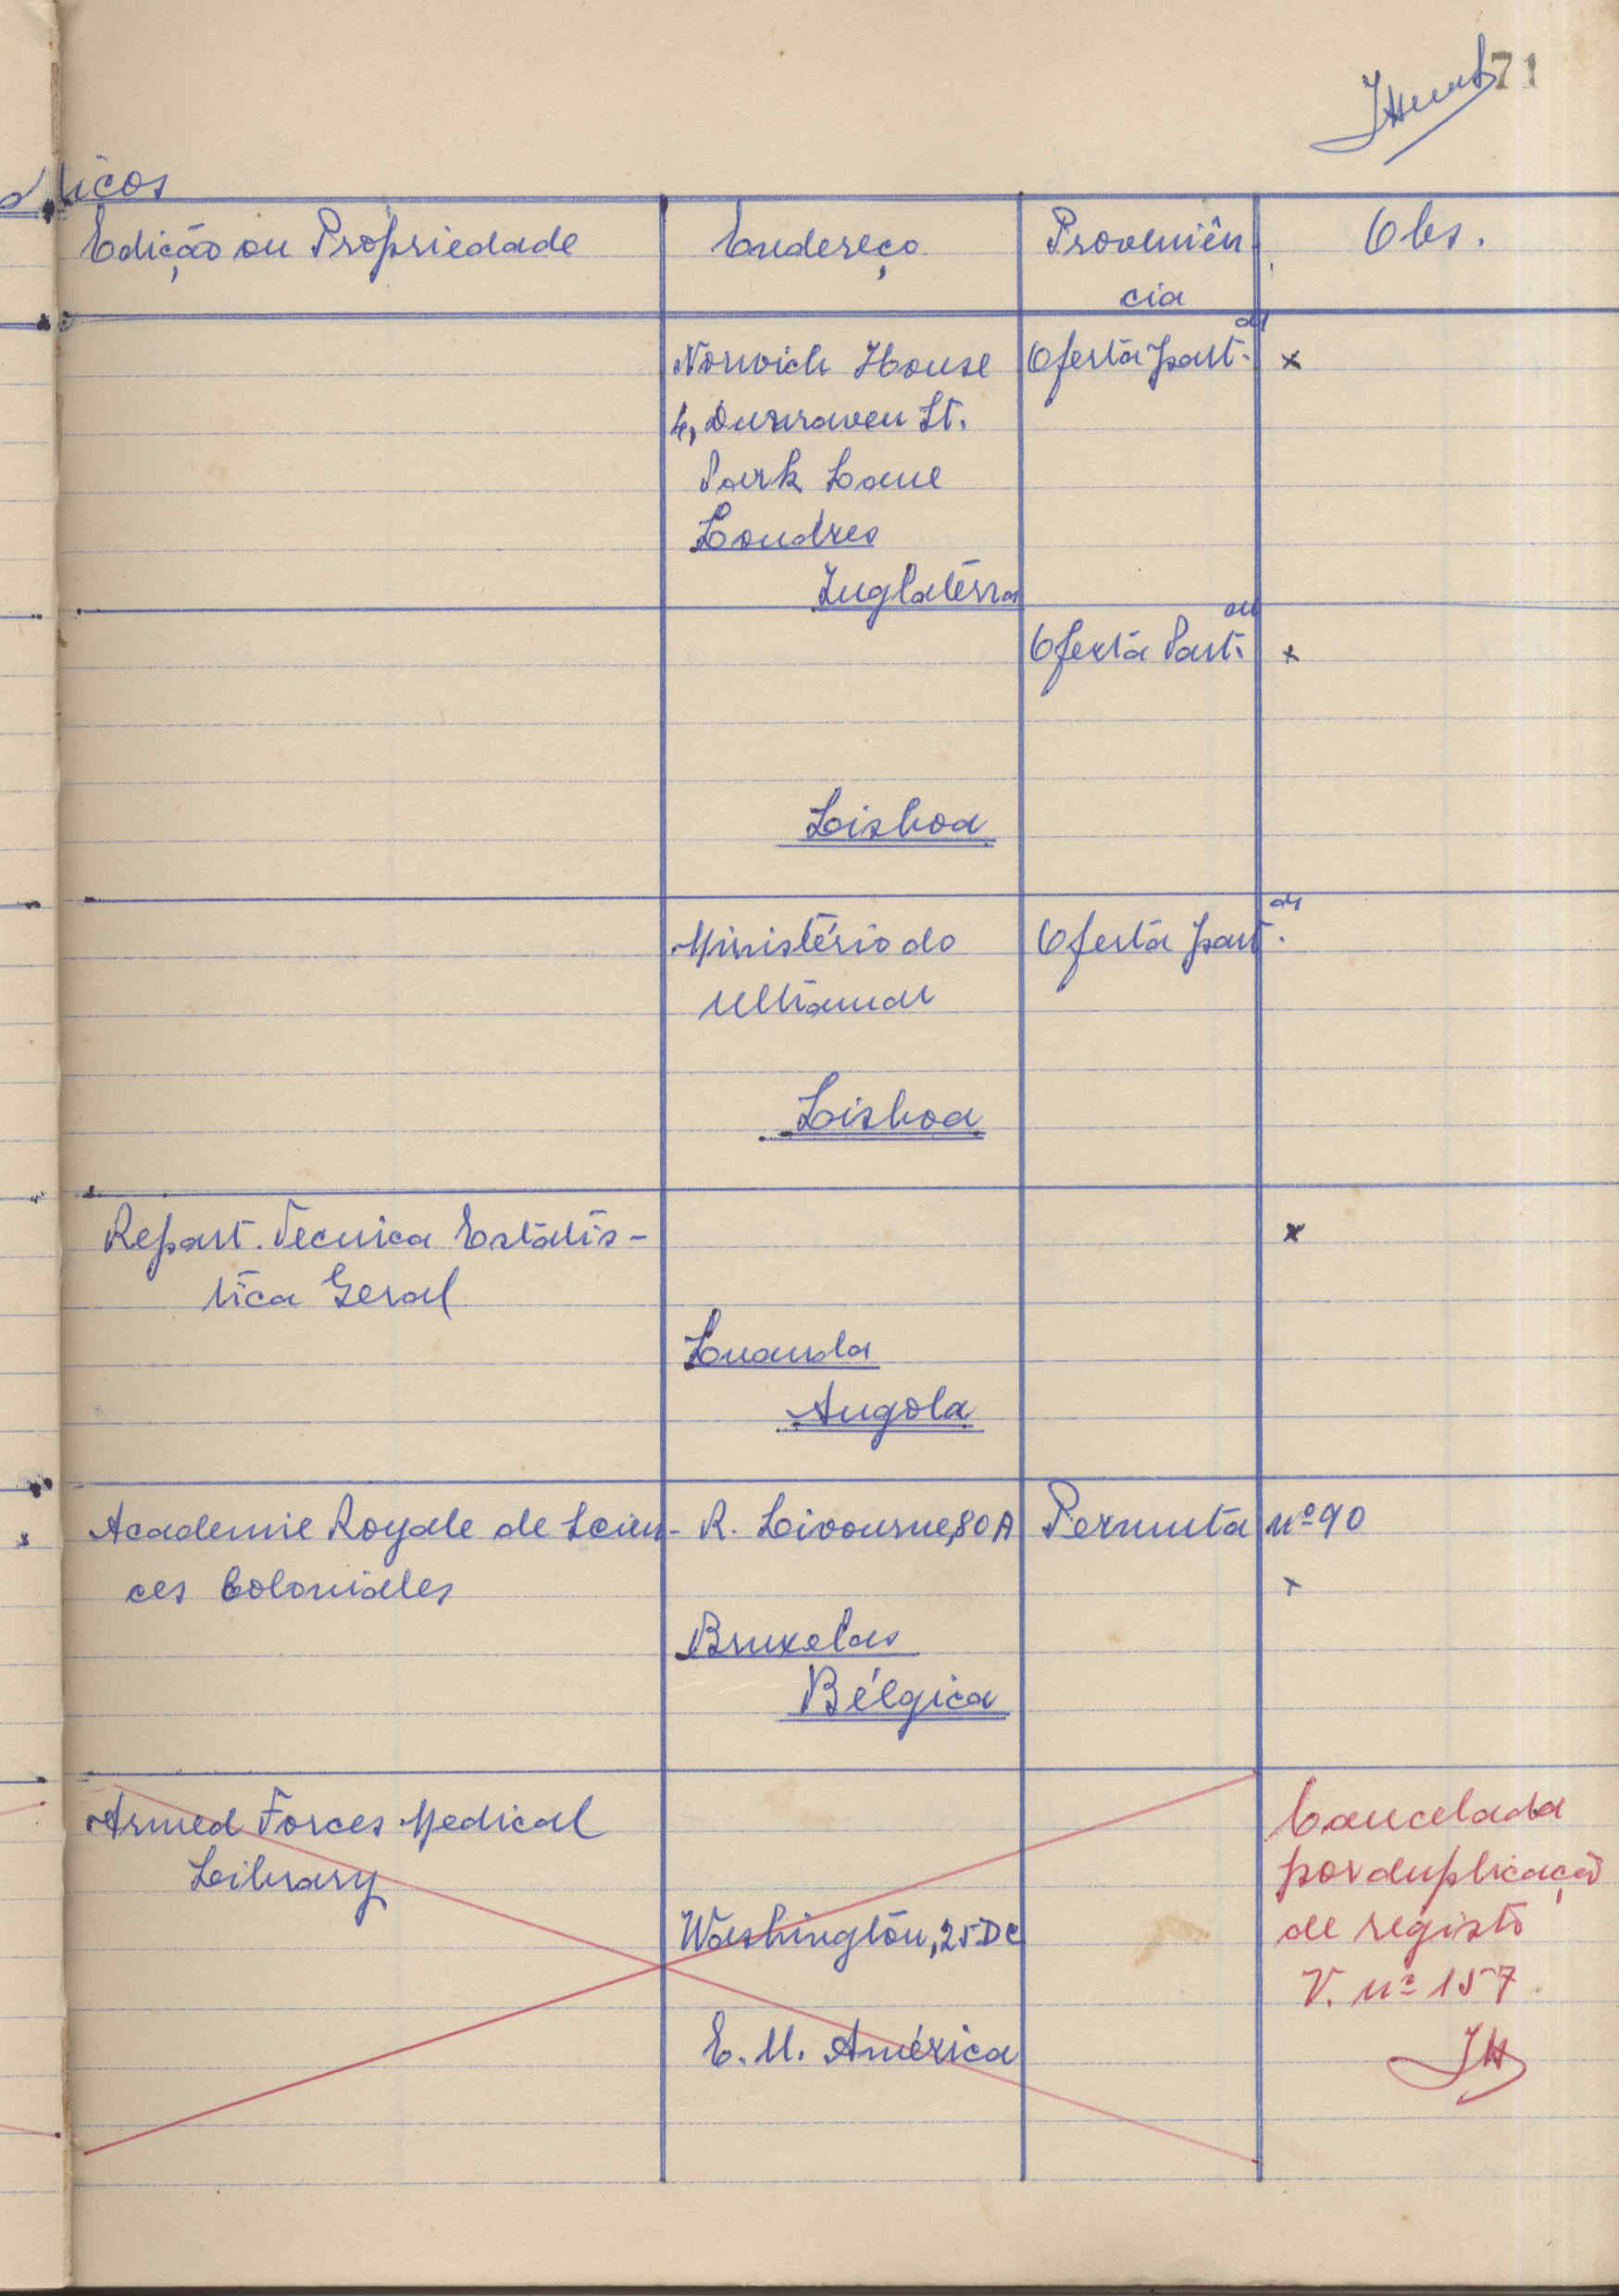 71
dicos
Edição ou Propriedade Endereço Proveniên Obs.
cia
Norwich House Oferta part.ar x
4, Dunraven St.
Park Lane
Londres
Inglaterra
Oferta Part.ar x
Lisboa
Ministério do Oferta part.ar
Ultramar
Lisboa
Repart. Tecnica Estatís- x
tica Geral
Luanda
Angola
Academie Royale de Scien- R. Livourne, 80A Permuta nº 90
ces Coloniales x
Bruxelas
Bélgica
Armed Forces Medical Cancelada
Library por duplicação
Washington, 25 DC de registo
V. nº 157
E. U. América JH